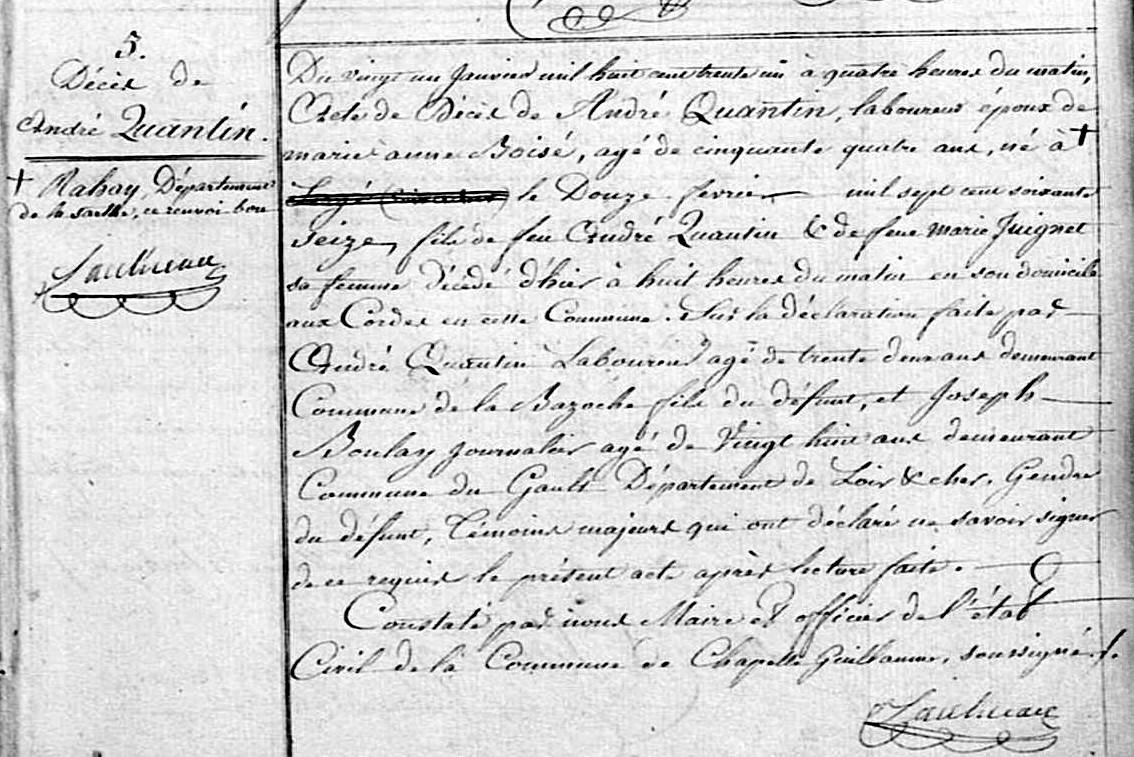 5.
Décès de
André Quantin.
+ Rahay, Département
de la Sarthe, ce renvoi bon
Du vingt un Janvier mil huit cent trente un à quatre heures du matin,
Acte de Décès de André Quantin, laboureur époux de
marie anne Boisé, agé de cinquante quatre ans, né à +
le Douze fevrier mil sept cent soixante
seize, fils de feu André Quantin & de feue marie Juignet
sa femme décédé d'hier à huit heures du matin en son domicile
aux Cordes en cette Commune. Sur la déclaration faite par
André Quantin Laboureur agé de trente deux ans demeurant
Commune de la Bazoche fils du défunt, et Joseph
Boulay journalier agé de Vingt huit ans demeurant
Commune du Gault Département de Loir & cher, Gendre
du défunt, Témoins majeurs qui ont déclaré ne savoir signer
de ce requis le présent acte après lecture faite.
Constaté par nous Maire et officier de l'état
Civil de la Commune de Chapelle Guillaume, soussigné./.